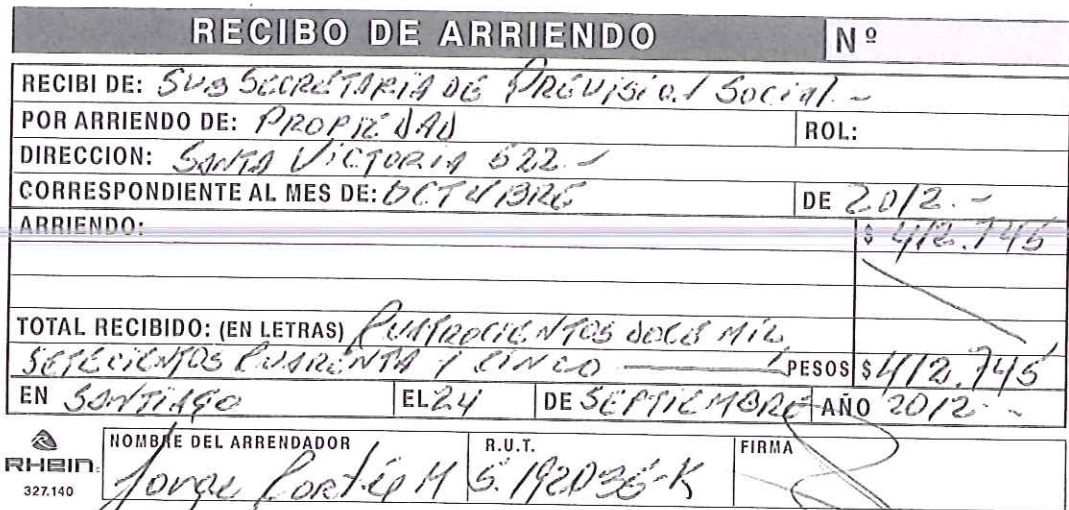 RECIBO DE ARRIENDO Nº
RECIBI DE: SUB SECRETARIA DE PREVISION SOCIAL.-
POR ARRIENDO DE: PROPIEDAD ROL:
DIRECCION: SANTA VICTORIA 522.-
CORRESPONDIENTE AL MES DE: OCTUBRE DE 2012.-
ARRIENDO: $ 412.745
TOTAL RECIBIDO: (EN LETRAS) CUATROCIENTOS DOCE MIL
SETECIENTOS CUARENTA Y CINCO PESOS $ 412.745
EN SANTIAGO EL 24 DE SEPTIEMBRE AÑO 2012.-
RHEIN NOMBRE DEL ARRENDADOR R.U.T. FIRMA
327.140 Jorge M 5.192036-K